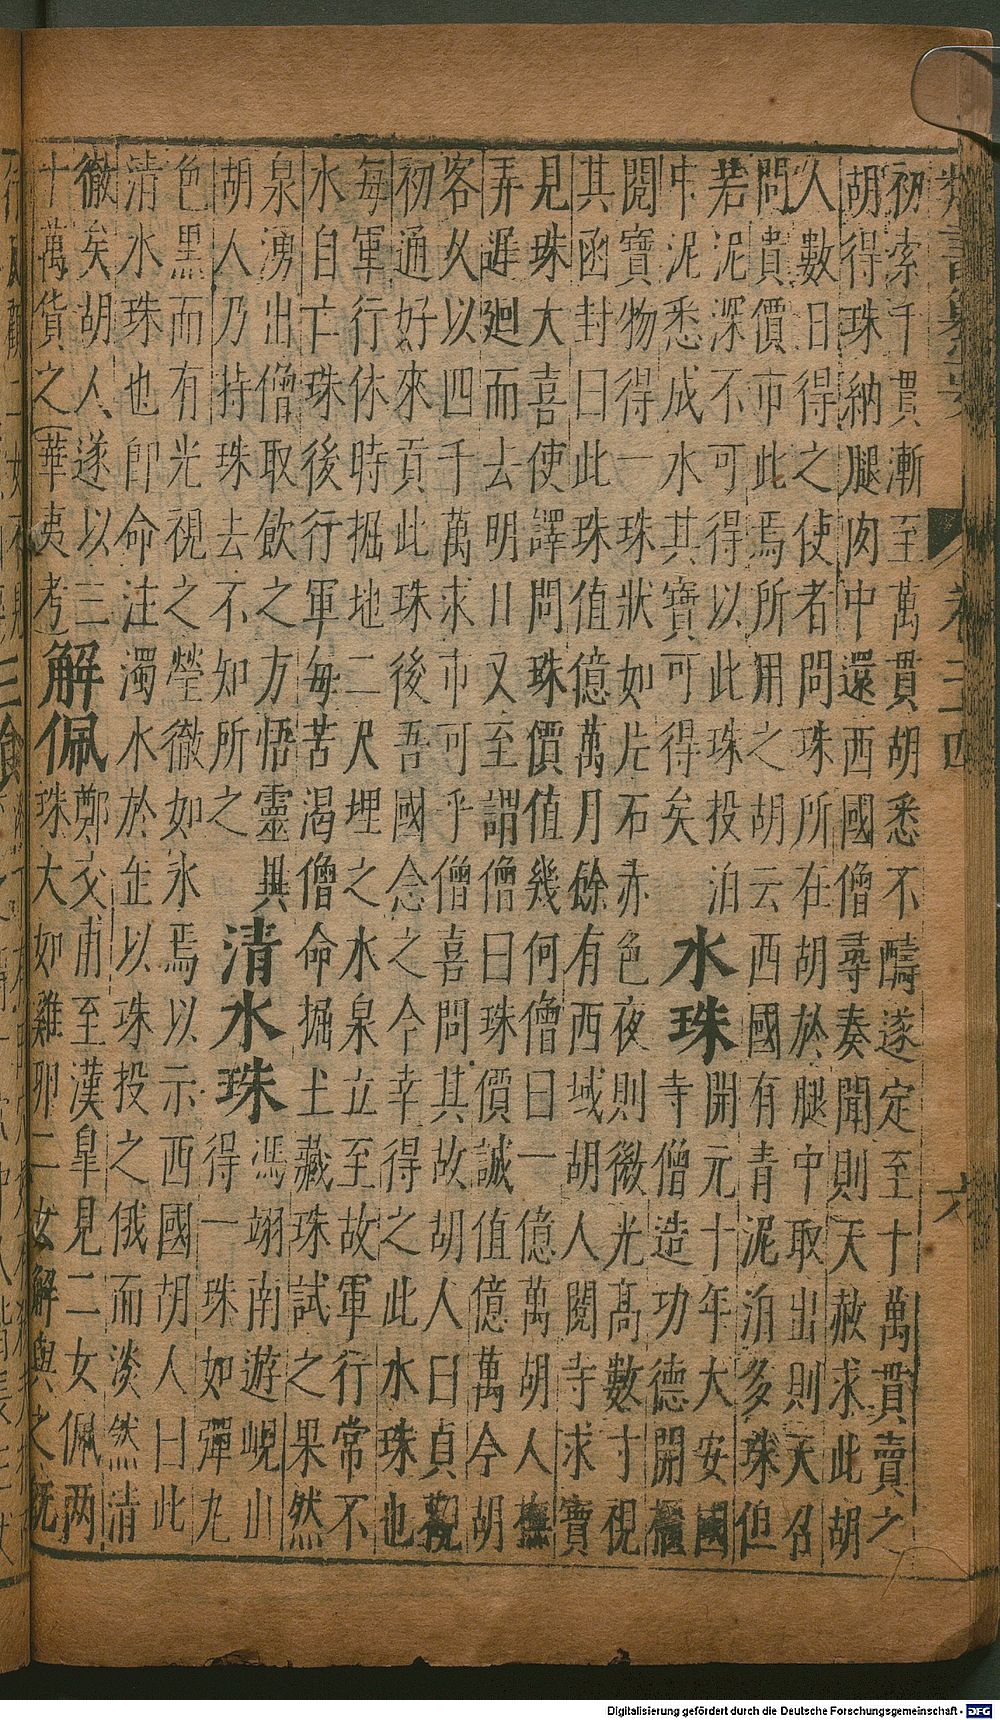 初索千貫漸至萬貫胡悉不醻遂定至十萬貫賣之
胡得珠納腿肉中還西國僧尋奏聞則天赦求此胡
人數日得之使者問珠所在胡於腿中取出則天召
問貴價市此焉所用之胡云西國有青泥泊多珠但
若泥深不可得以此珠投泊
中泥悉成水其寶可得矣
水珠
開元十年大安國
寺僧造功德開櫃
閱寶物得一珠狀如片石赤色夜則微光高數寸視
其函封曰此珠值億萬月餘有西域胡人閱寺求寶
見珠大喜使譯問珠價值幾何僧曰一億萬胡人撫
弄遲廻而去明日又至謂僧曰珠價誠值億萬今胡
客久以四千萬求市可乎僧喜問其故胡人曰貞觀
初通好來貢此珠後吾國念之今幸得之此水珠也
每軍行休時掘地二尺埋之水泉立至故軍行常不
水自亡珠後行軍每苦渴僧命掘土藏珠試之果然
泉湧出僧取飲之方悟靈異
胡人乃持珠去不知所之
清水珠
馮翊南遊峴山
得一珠如彈丸
色黑而有光視之瑩徹如氷焉以示西國胡人曰此
清水珠也卽命注濁水於缶以珠投之俄而淡然清
徹矣胡人遂以三
十萬貨之(華夷考)
解佩
鄭交甫至漢臯見二女佩两
珠大如雞卵二女解與之既
卷三十四
六
Digitalisierung gefördert durch die Deutsche Forschungsgemeinschaft - DFG